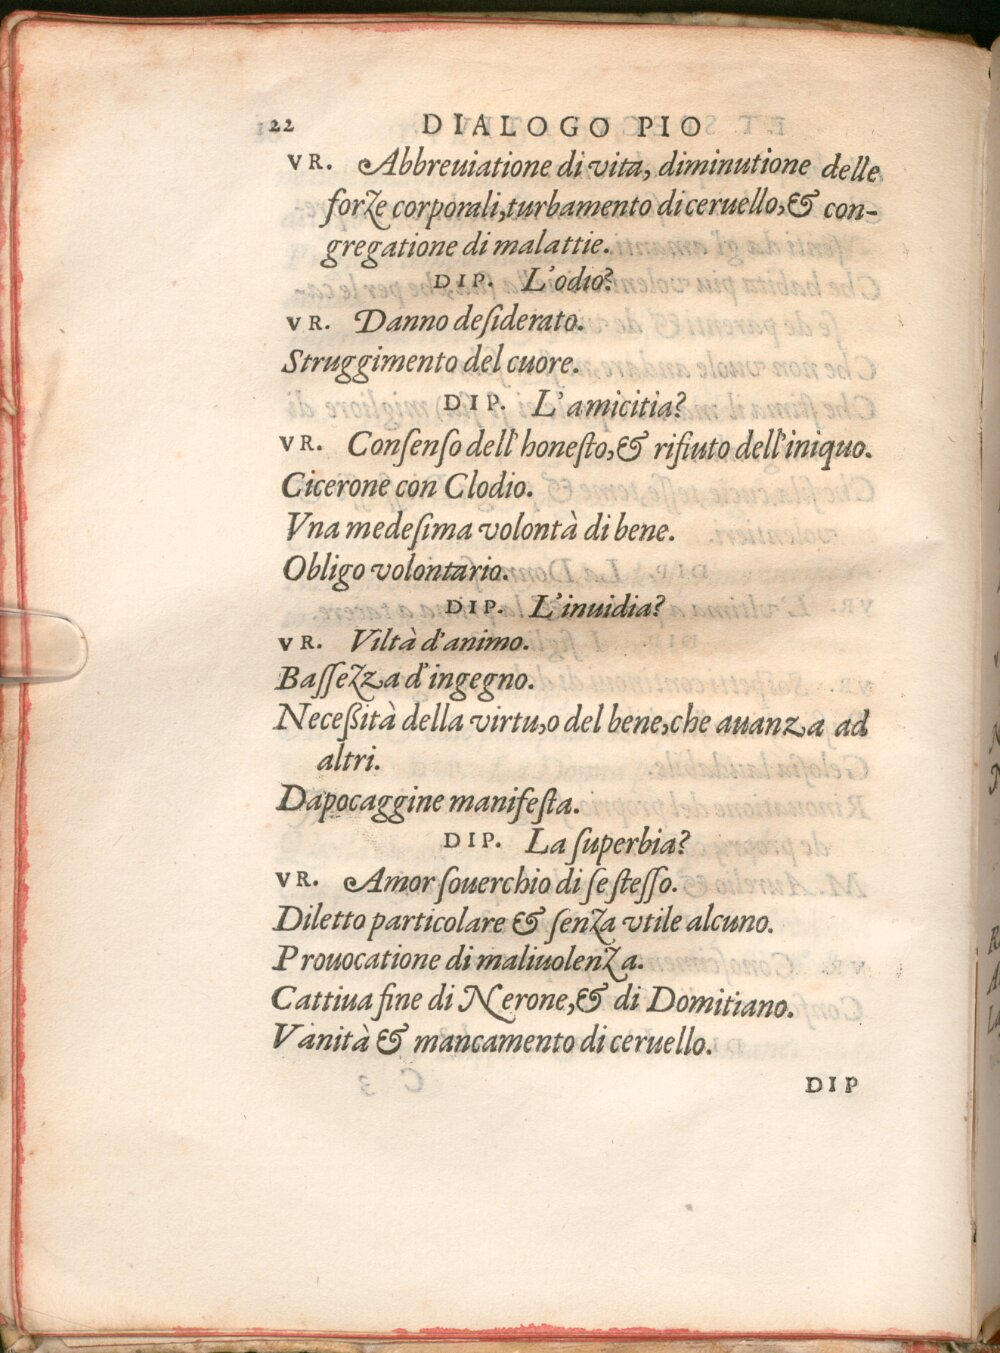 22 DIALOGO PIO
VR. Abbreuiatione di vita, diminutione delle
forze corporali, turbamento di ceruello, & con-
gregatione di malattie.
DIP. L'odio?
VR. Danno deſiderato.
Struggimento del cuore.
DIP. L'amicitia?
VR. Conſenſo dell'honeſto, & rifiuto dell'iniquo.
Cicerone con Clodio.
Vna medeſima volontà di bene.
Obligo volontario.
DIP. L'inuidia?
VR. Viltà d'animo.
Baſſezza d'ingegno.
Neceßità della virtu, o del bene, che auanza ad
altri.
Dapocaggine manifeſta.
DIP. La ſuperbia?
VR. Amor ſouerchio di ſe ſteſſo.
Diletto particolare & ſenza vtile alcuno.
Prouocatione di maliuolenza.
Cattiua fine di Nerone, & di Domitiano.
Vanità & mancamento di ceruello.
DIP